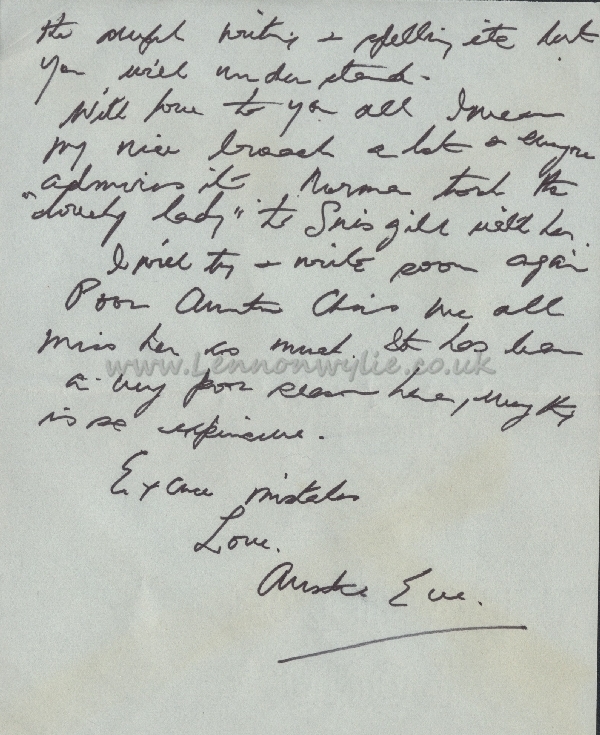 the awful writing & spelling etc but
you will understand.
With love to you all I wear
my nice broach a lot & everyone
admires it Norma took the
"lovely lady" to with her
I will try & write soon again
Poor Auntie Chris we all
miss her so much. It has been
www.Lennonwylie.co.uk
a very poor season here, everything
is so expensive.
Excuse mistakes
Love.
Auntie Eve.